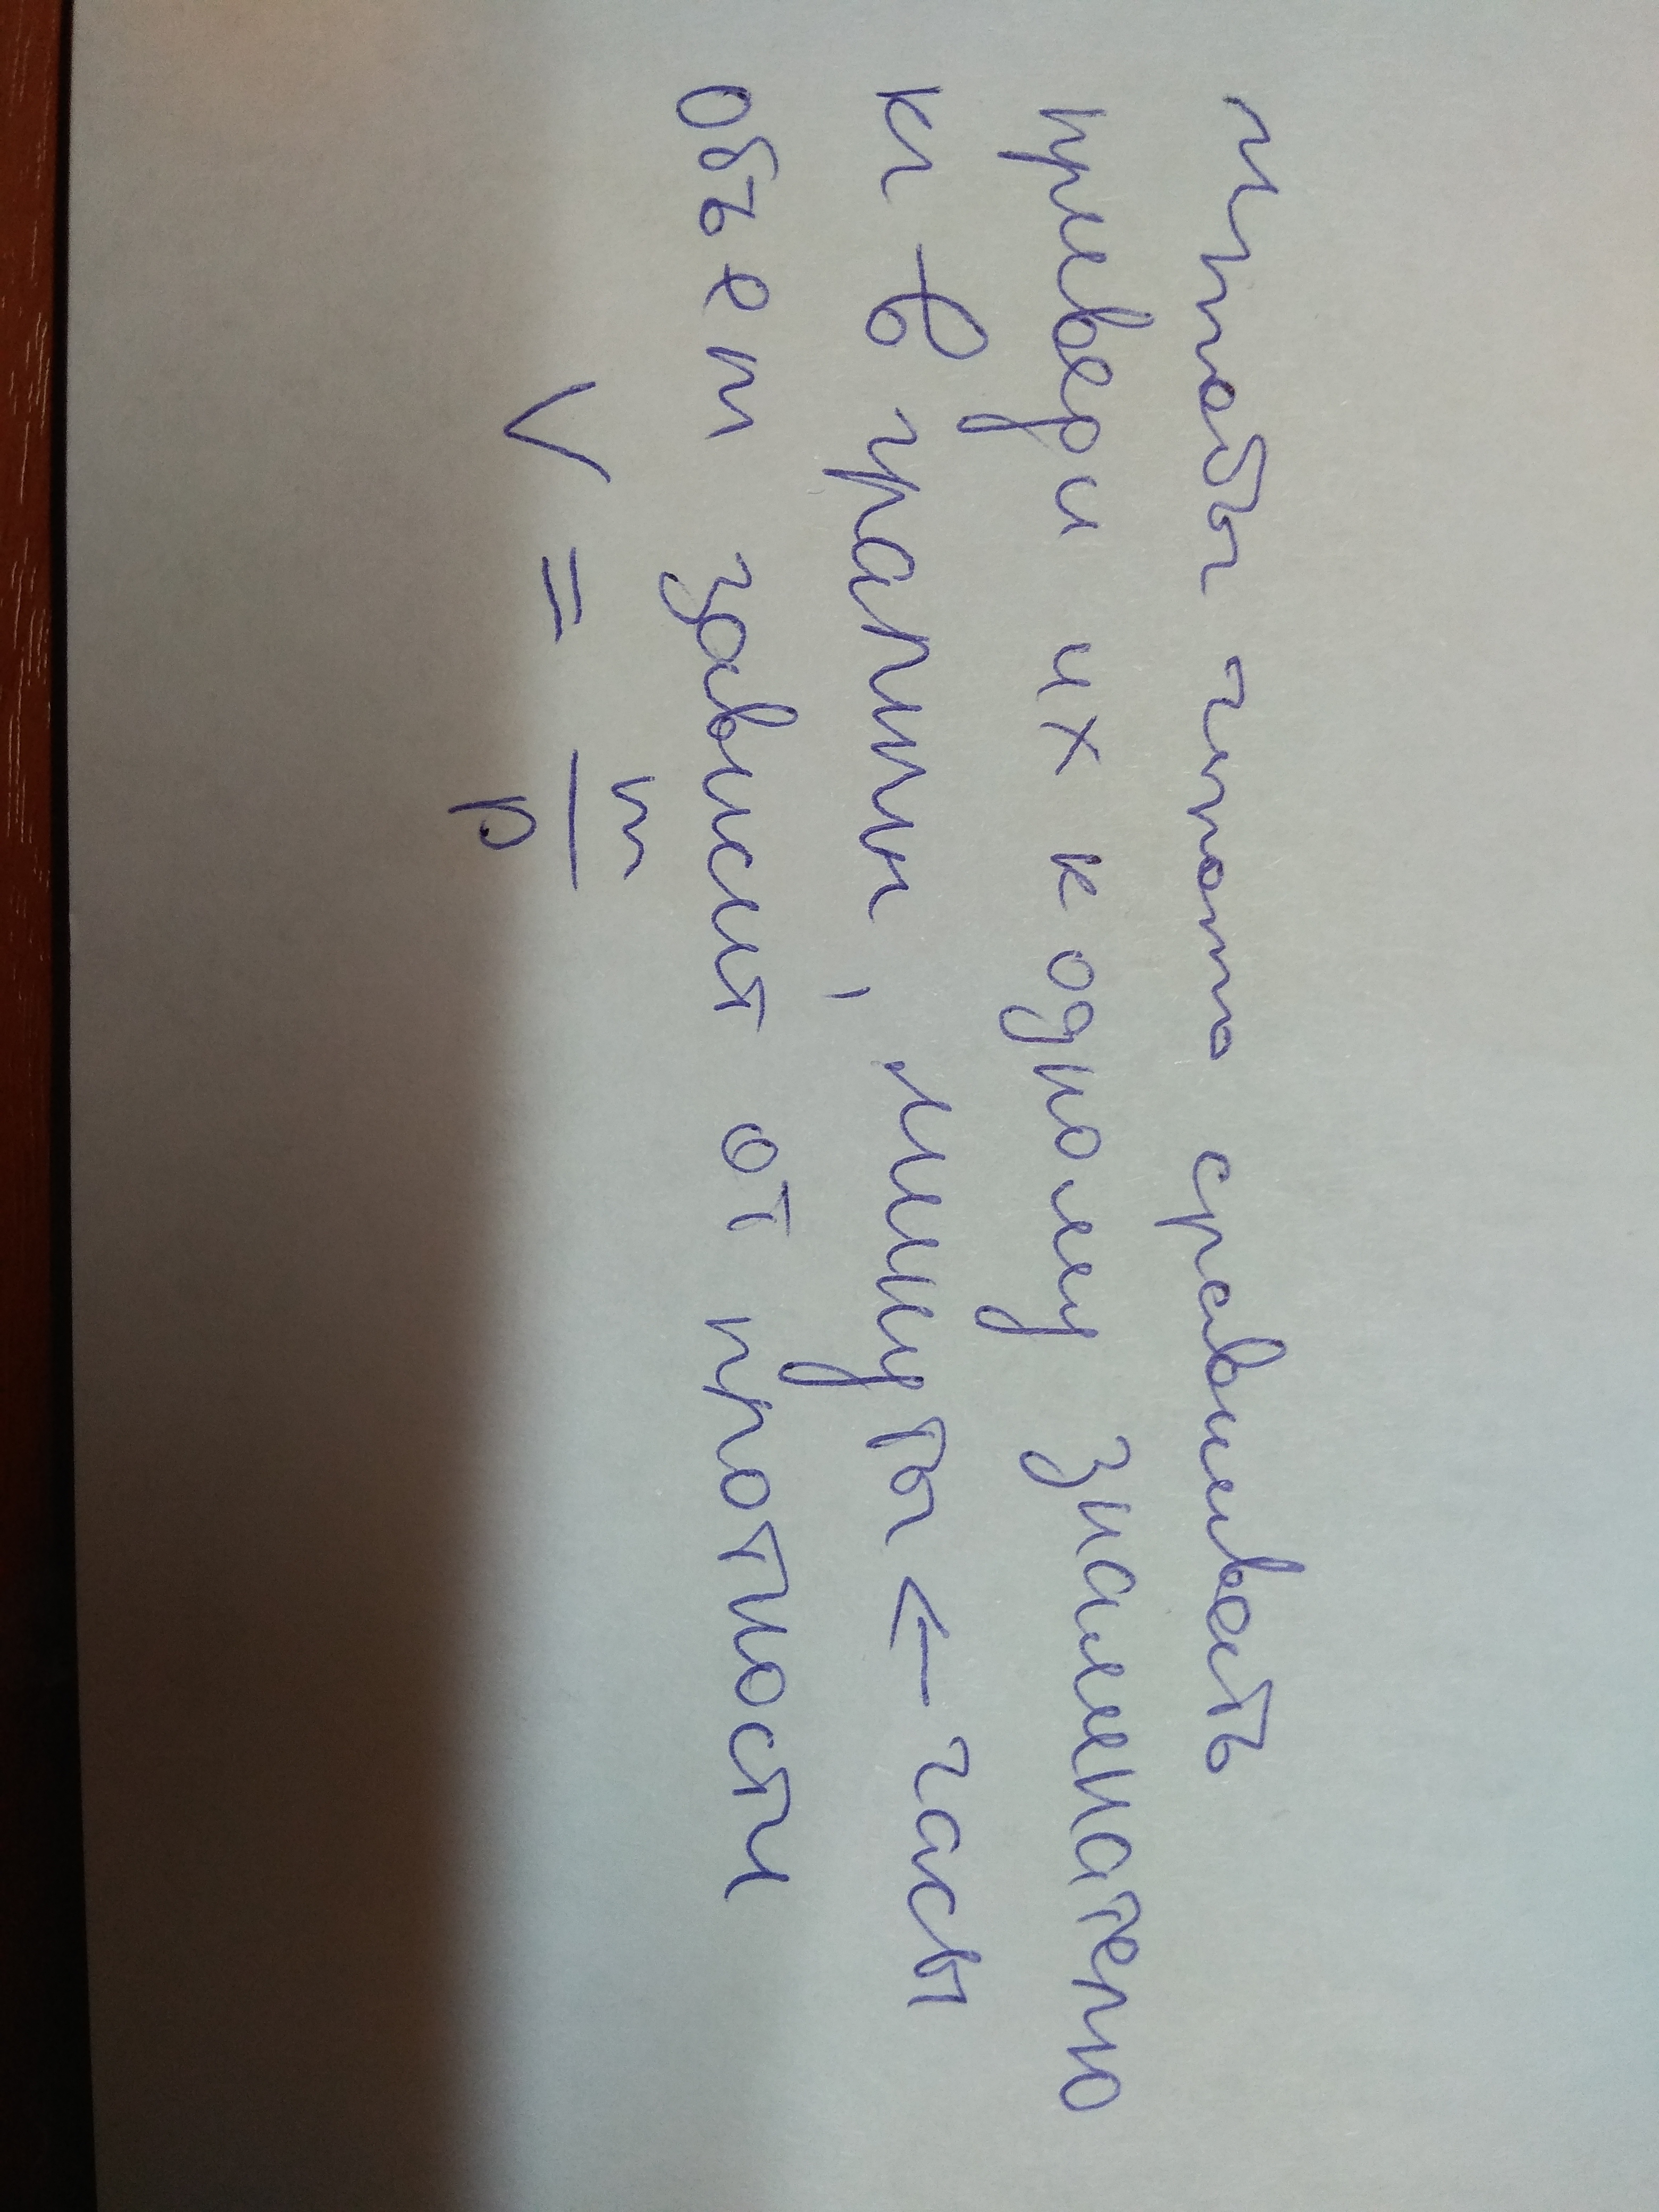 чтобы что-то сравнивать
приведи их к одному знаменателю
кг в граммы, минуты ← часы
объем зависит от плотности
V = m/ρ